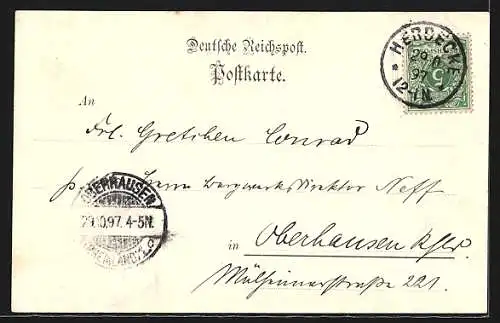 Deutsche Reichspost.
Postkarte.
HERDECKE
29 10
97
* 12-1N.
5
An
Frl. Gretchen Conrad
p. Herrn Bergwerksdirektor Neff
OBERHAUSEN
29.10.97. 4-5N.
(RHEINLAND)
in Oberhausen Rhld.
Mülheimerstraße 221.